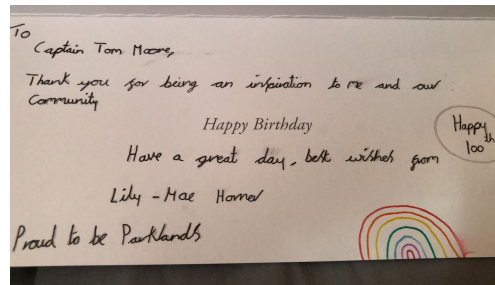 To
Captain Tom Moore,
Thank you for being an inspiration to me and our
Community
Happy Birthday
Happy
100th
Have a great day, best wishes from
Lily-Mae Horner
Proud to be Parklands